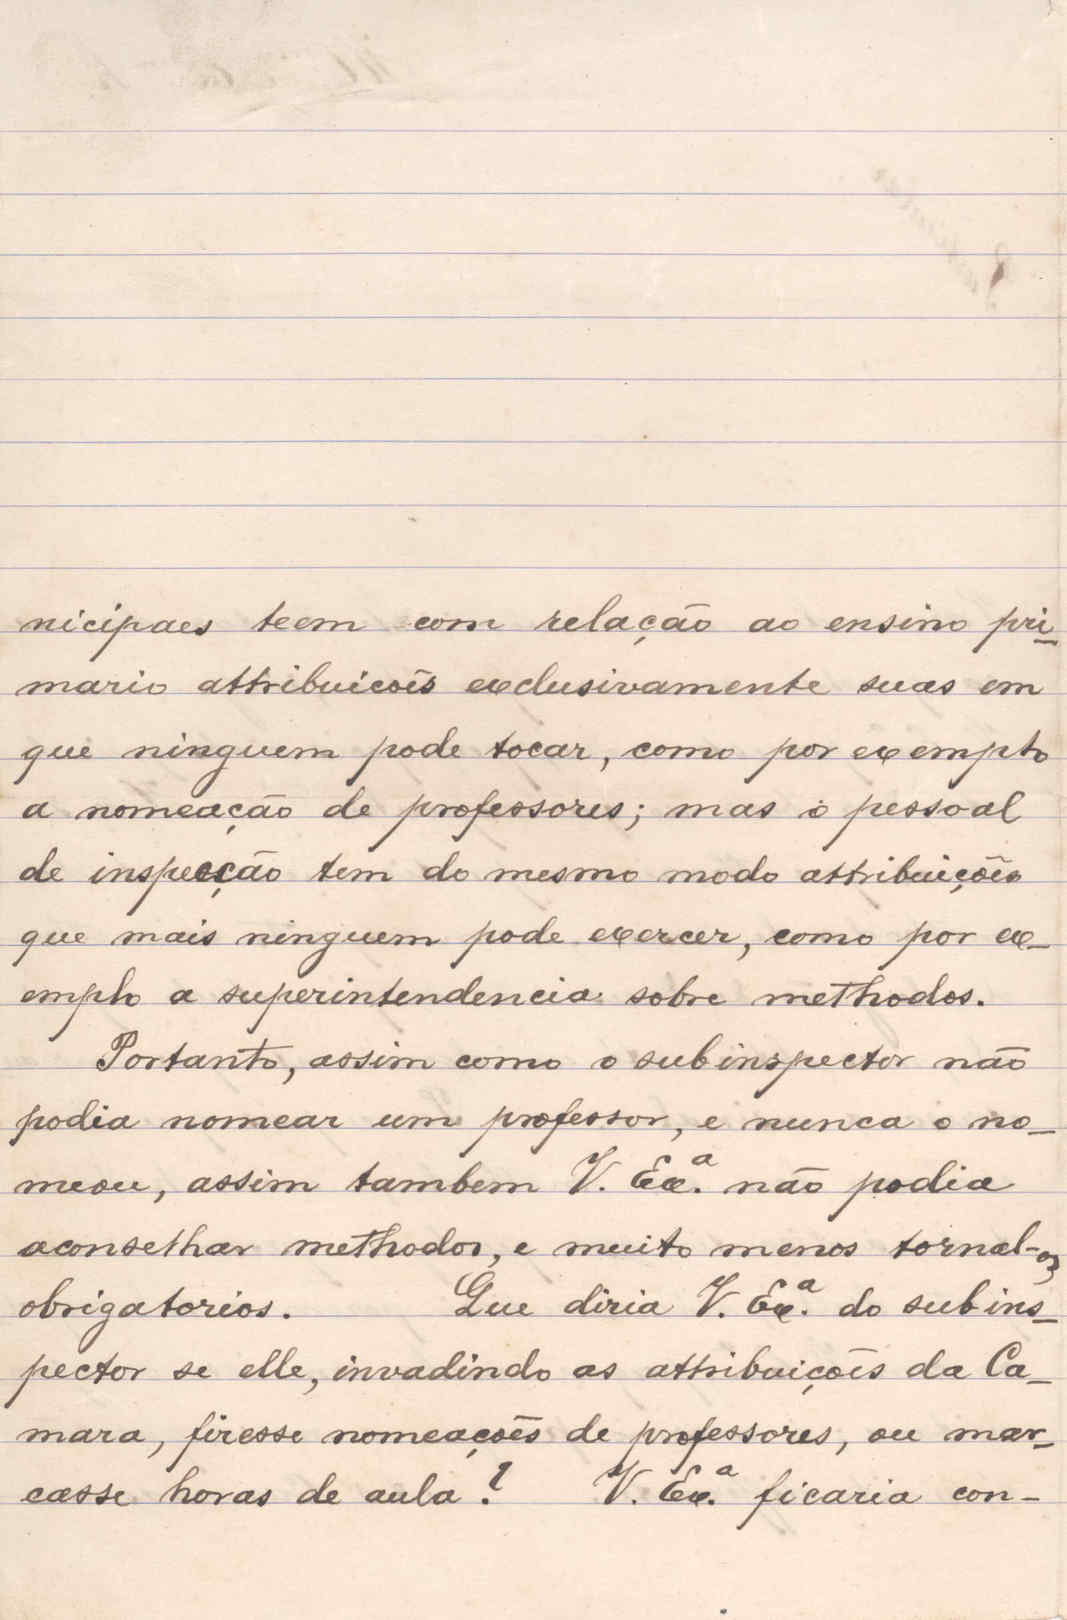 nicipaes teem com relação ao ensino pri-
mario attribuicoẽs exclusivamente suas em
que ninguem pode tocar, como por exemplo
a nomeação de professores; mas o pessoal
de inspecção tem do mesmo modo attribuiçoẽs
que mais ninguem pode exercer, como por ex-
emplo a superintendencia sobre methodos.
Portanto, assim como o subinspector não
podia nomear um professor, e nunca o no-
meou, assim tambem V. Ex.ª não podia
aconselhar methodos, e muito menos tornal-os
obrigatorios. Que diria V. Ex.ª do subins-
pector se elle, invadindo as attribuiçoẽs da Ca-
mara, fizesse nomeaçoẽs de professores, ou mar-
casse horas de aula? V. Ex.ª ficaria con-